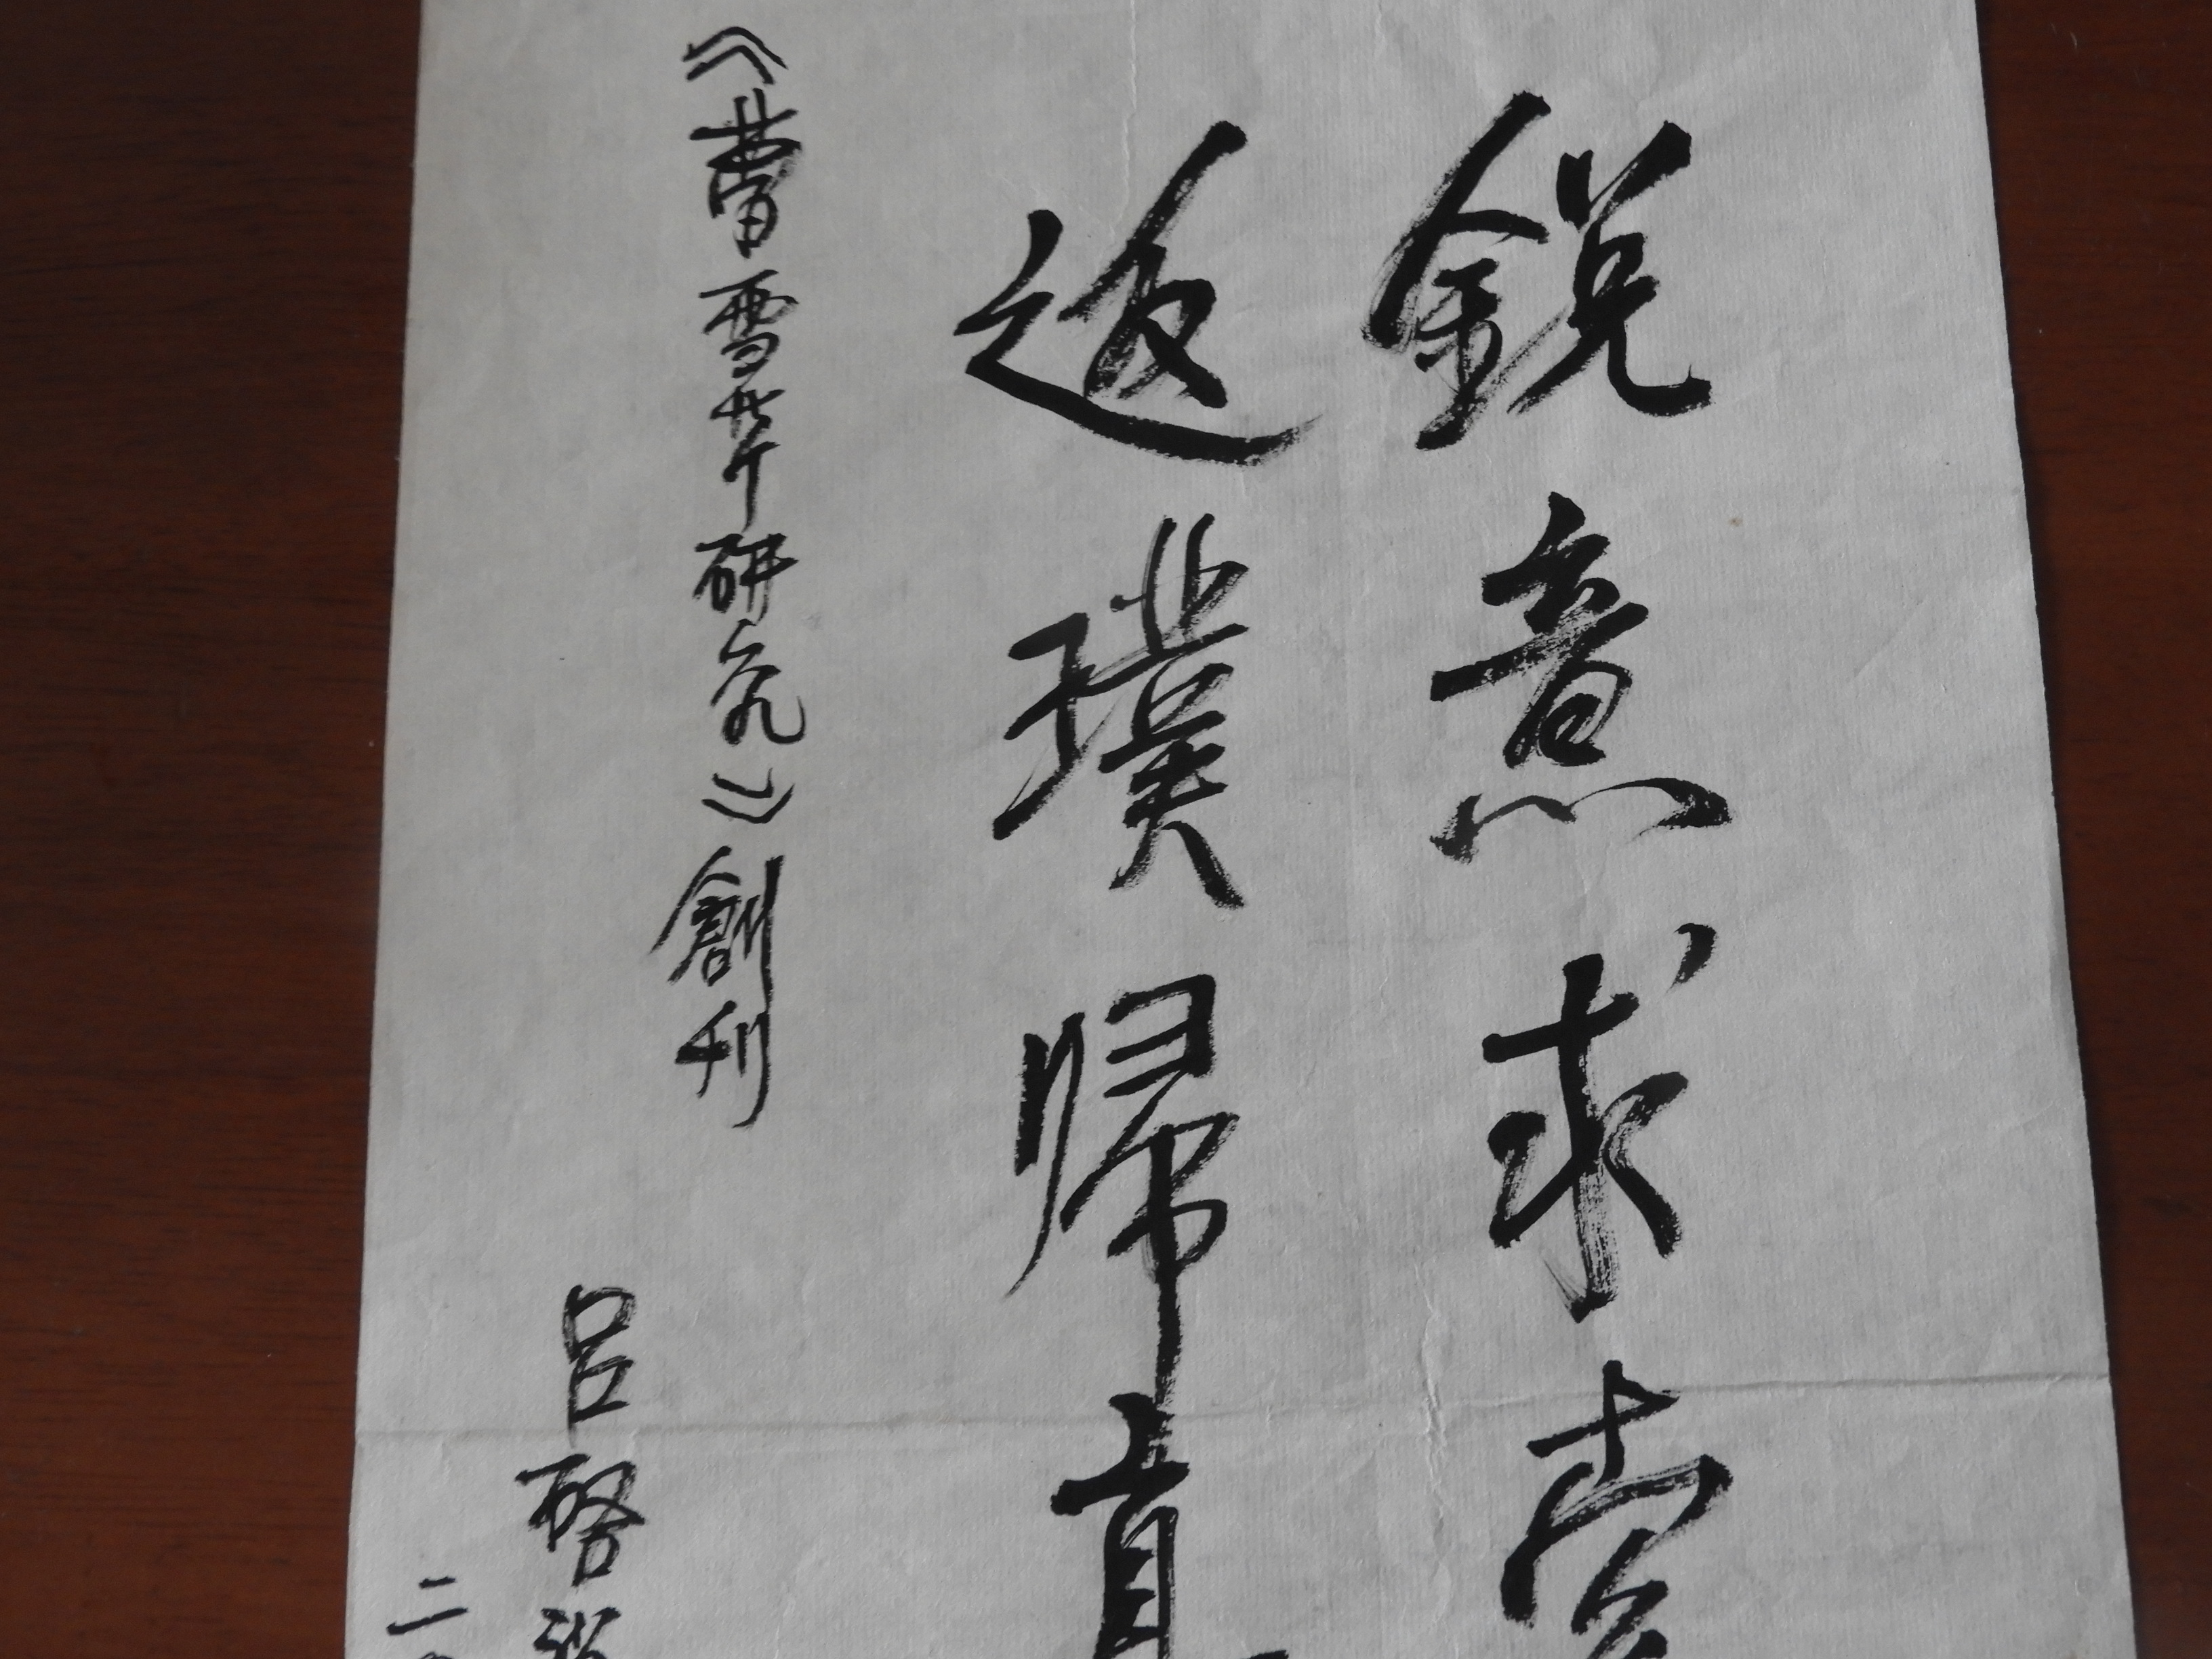 鋭意求索
返璞歸真
《曹雪芹研究》創刊
呂啓祥
二